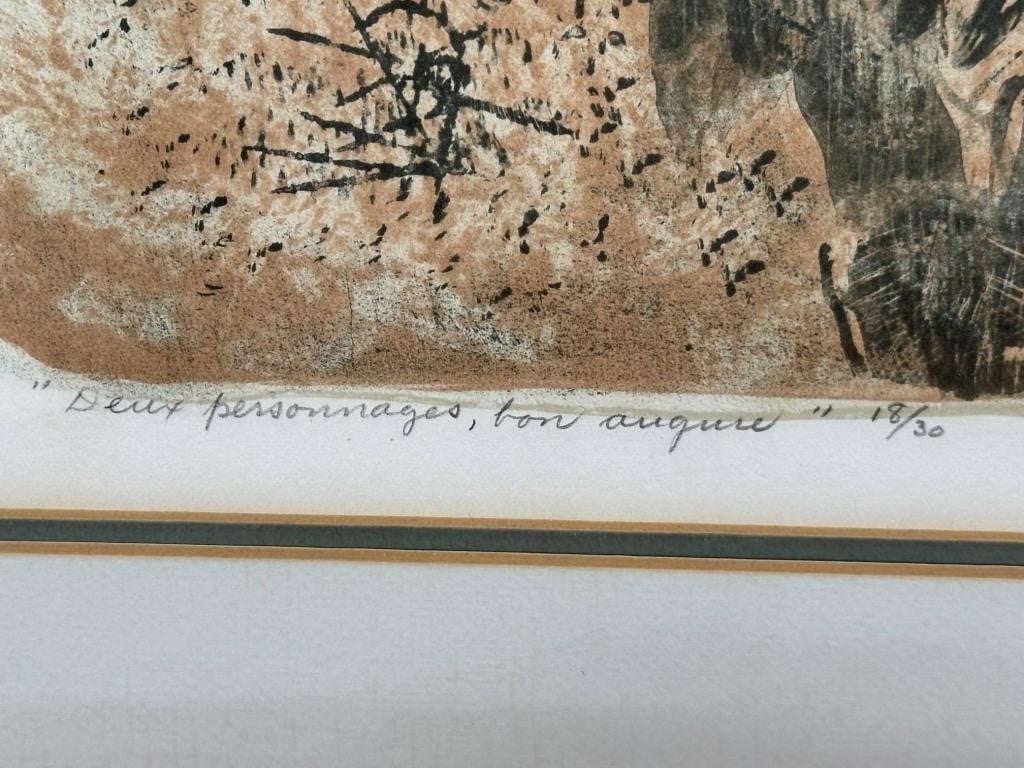 " Deux personnages, bon augure " 18/30